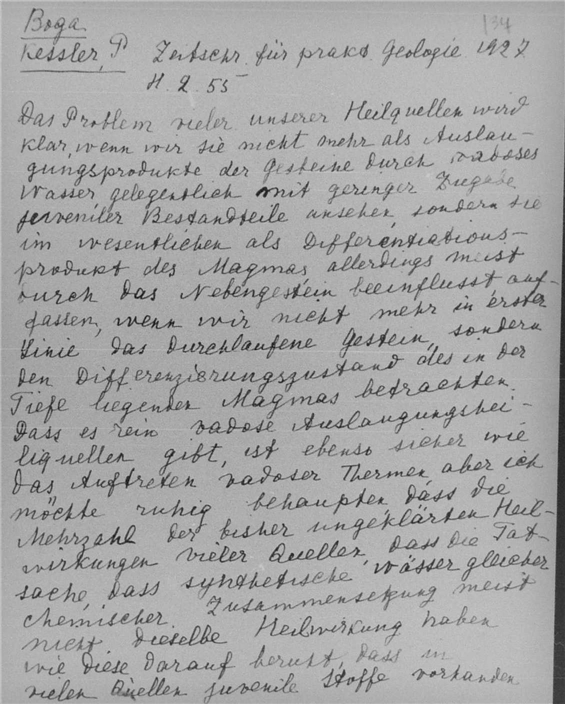 Boga. 134
Kessler, P Zeitschr. für prakt Geologie 1927
H. 2. 55
Das Problem vieler unserer Heilquellen wird
klar, wenn wir sie nicht mehr als Auslau-
gungsprodukte der Gesteine durch vadoses
Wasser, gelegentlich mit geringer Zugabe
juveniler Bestandteile ansehen sondern sie
im wesentlichen als Differentiations-
produkt des Magmas, allerdings meist
durch das Nebengestein beeinflusst auf-
fassen, wenn wir nicht mehr in erster
Linie das durchlaufene Gestein, sondern
den Differenzierungszustand des in der
Tiefe liegenden Magmas betrachten.
Dass es rein vadose Auslaugungshei-
lquellen gibt, ist ebenso sicher wie
das Auftreten vadoser Thermen, aber ich
möchte ruhig behaupten, dass die
Mehrzahl der bisher ungeklärten Heil-
wirkungen vieler Quellen, dass die Tat-
sache, dass synthetische Wässer gleicher
chemischer Zusammensetzung meist
nicht dieselbe Heilwirkung haben
wie diese darauf beruht, dass in
vielen Quellen juvenile Stoffe vorhanden